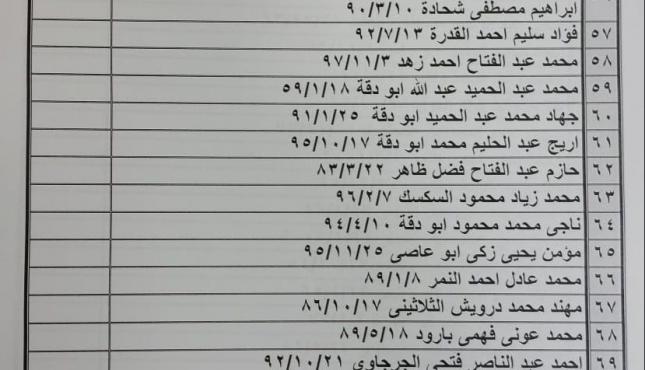 ابراهيم مصطفى شحادة ٩٠/٣/١٠
٥٧ فؤاد سليم احمد القدرة ٩٢/٧/١٣
٥٨ محمد عبد الفتاح احمد زهد ٩٧/١١/٣
٥٩ محمد عبد الحميد عبد الله ابو دقة ٥٩/١/١٨
٦٠ جهاد محمد عبد الحميد ابو دقة ٩١/١/٢٥
٦١ اريج عبد الحليم محمد ابو دقة ٩٥/١٠/١٧
٦٢ حازم عبد الفتاح فضل ظاهر ٨٣/٣/٢٢
٦٣ محمد زياد محمود السكسك ٩٦/٢/٧
٦٤ ناجى محمد محمود ابو دقة ٩٤/٤/١٠
٦٥ مؤمن يحيى زكى ابو عاصى ٩٥/١١/٢٥
٦٦ محمد عادل احمد النمر ٨٩/١/٨
٦٧ مهند محمد درويش الثلاثينى ٨٦/١٠/١٧
٦٨ محمد عونى فهمى بارود ٨٩/٥/١٨
٦٩ احمد عبد الناصر فتحى الجرجاوي ٩٢/١٠/٢١